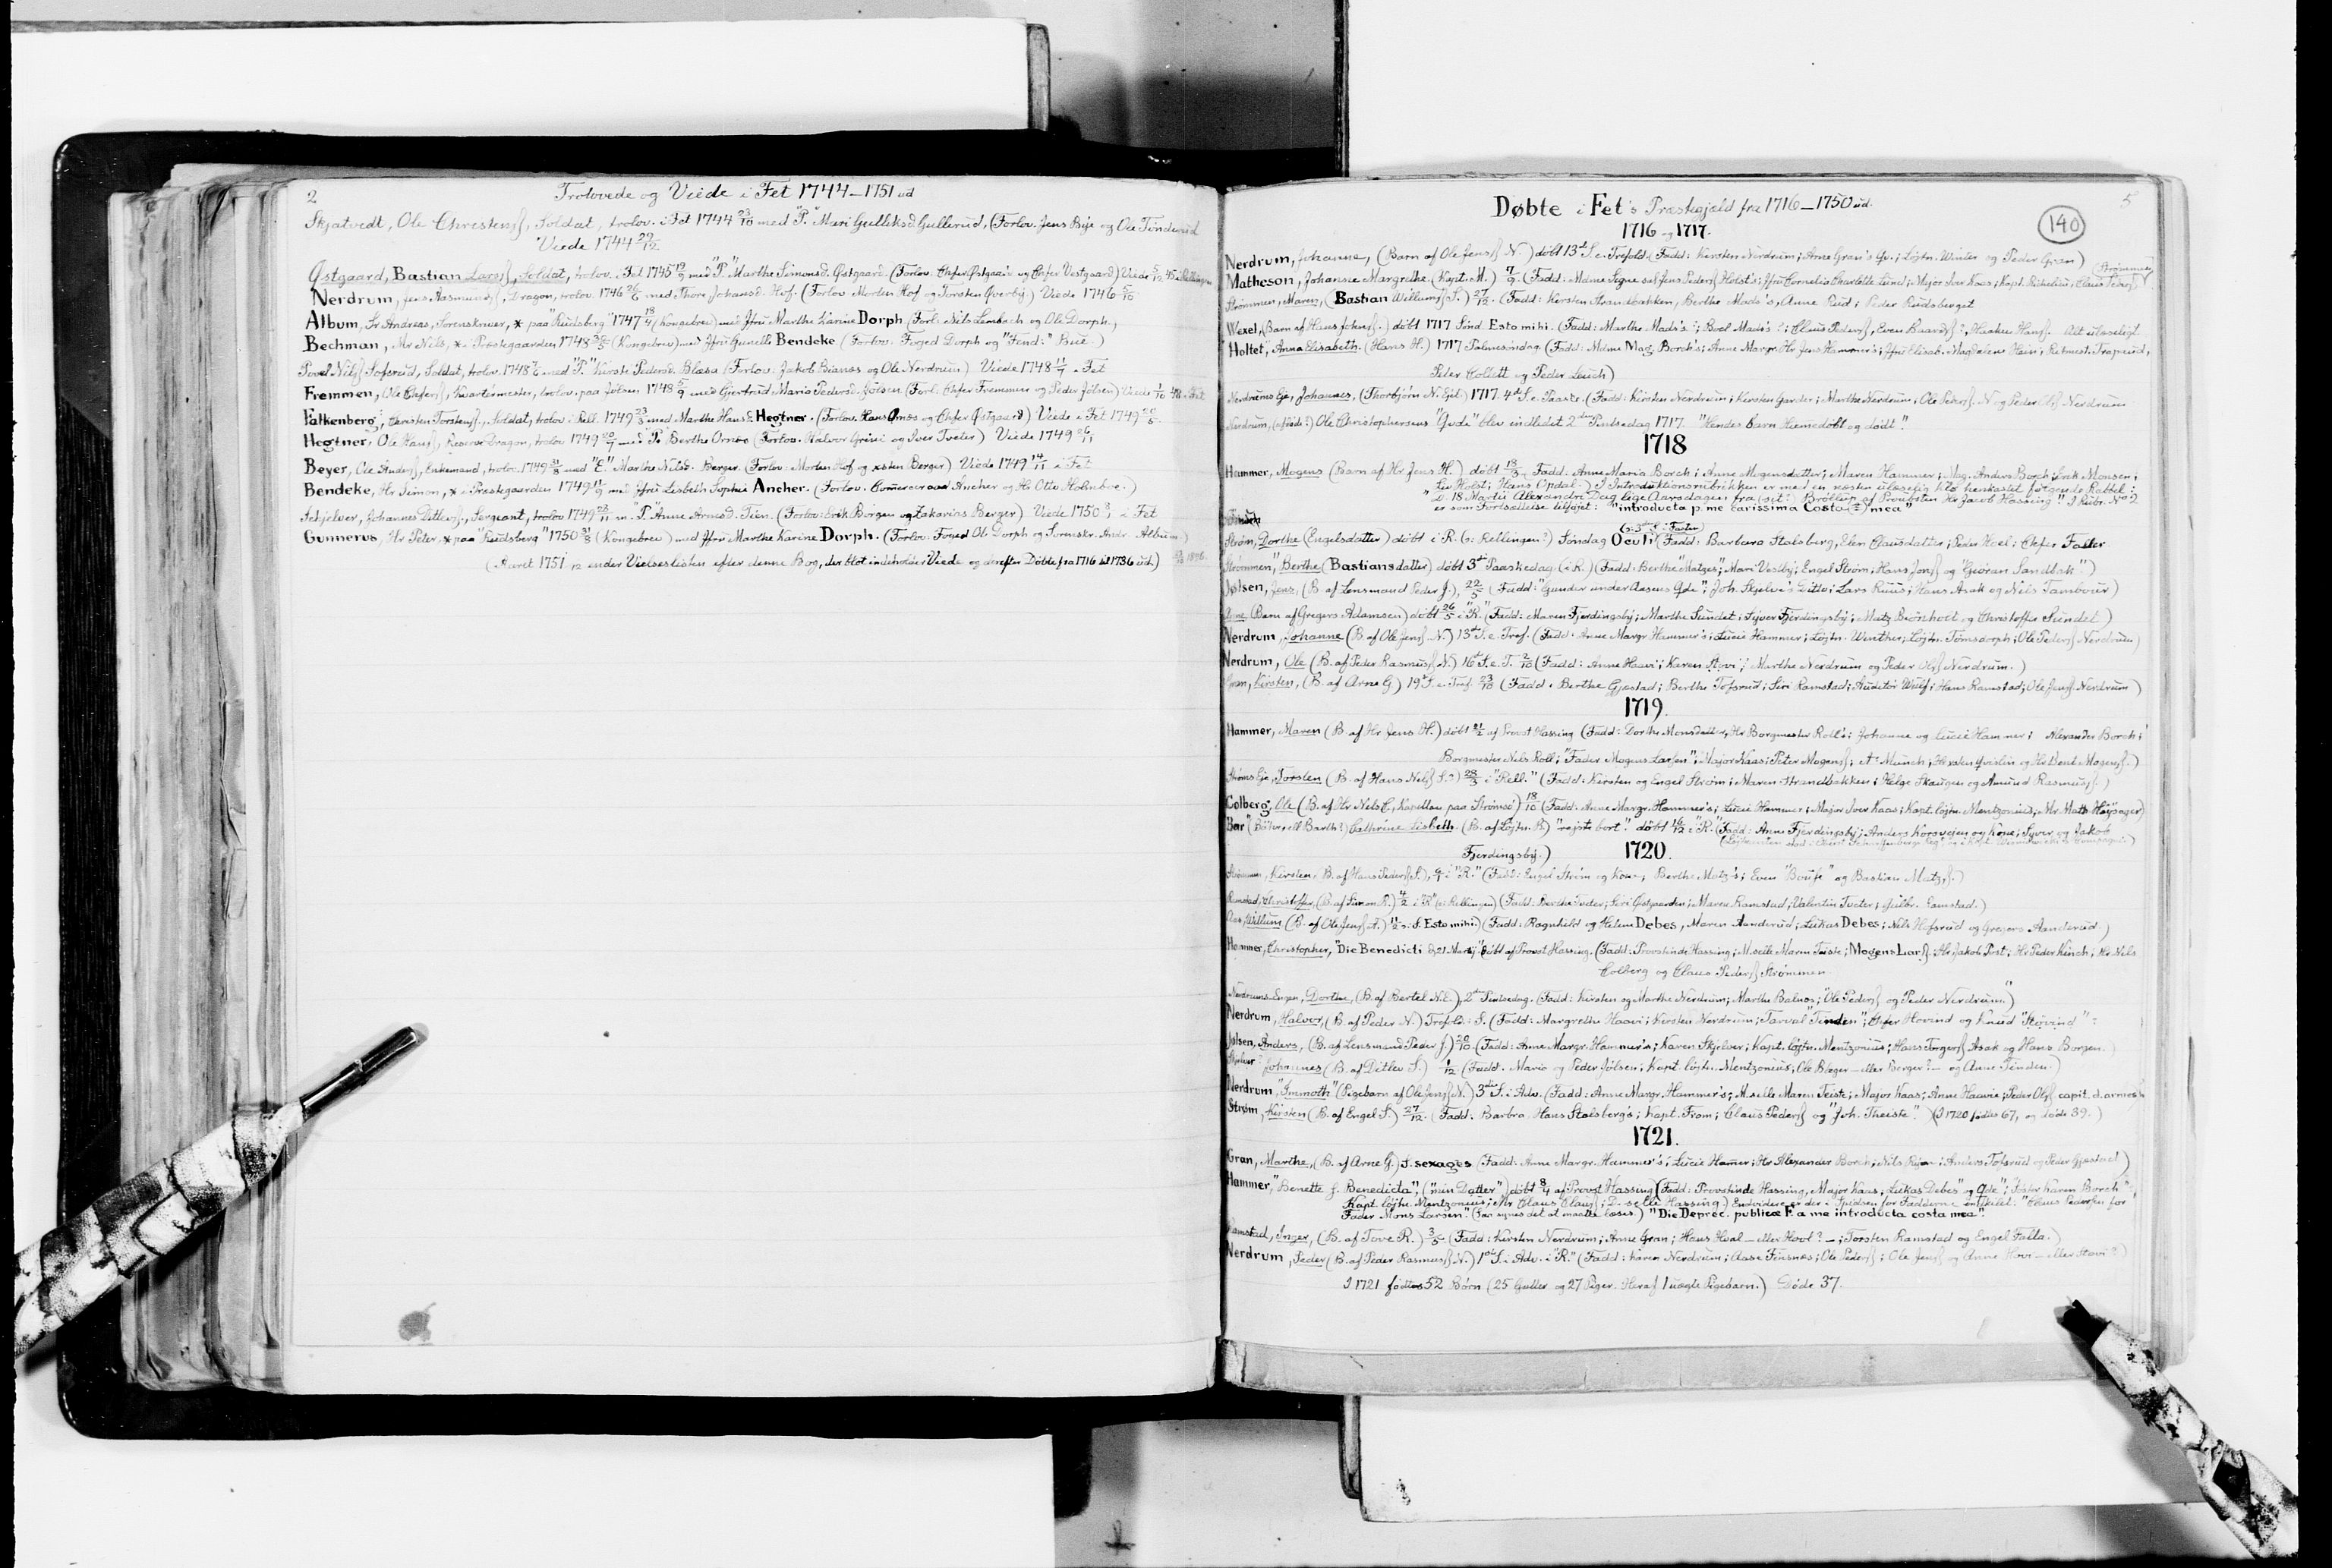 2
Troloved og Viede i Fet 1744–1751 ud
Skjatvedt, Ole Christens., Soldat, trolov. i Fet 1744 23/10 med "P." Mari Gulliksd. Gullerud, (Forlov. Jens Bye og Ole Tanderud
Viede 1744 29/12
Østgaard, Bastian Lars., Soldat, trolov. i Fet 1745 19/9 med "P." Marthe Simonsd. Østgaard. (Forlov: Østgaard og Vestgaard) Viede
Nerdrum, Jens Rasmus., Dragon, trolov. 1746 26/6 med Thore Johansd. Hof. (Forlov. Morten Hof og Torsten Øverby) Viede 1746
Album, Sr Andreas, Sorenskriver, * paa "Ruudsberg" 1747 18/4 (Kongebrev) med Jfru Marthe Karine Dorph (Forl: Nils Lembach og Ole Dorph.)
Bechman, Mr Nils, * i Præstegaarden 1748 (Kongebrev) med Jfru Gunelle Bendeke (Forlov: Foged Dorph og "Fend:" Bue)
Povel Nils. Soferud, Soldat, trolov. 1748 med "P." Kirste Pedersd. Blæsa (Forlov: Jakob Bianas og Ole Nerdrum) Viede 1748 i Fet
Fremmen, Ole, Kvartermester, trolov. paa Jølsen 1748 med Gjertrud Maria Pedersd. Jølsen (Forl. Fremmen og Peder Jølsen) Viede
Falkenberg, Christen Torstens., Soldat, trolov. i Rell. 1749 med Marthe Hansd. Hegtner. (Forlov. Hans Ønæs og Østgaard) Viede i Fet 1749
Hegtner, Ole Hans., Reserve Dragon, trolov. 1749 med "P." Berthe (Forlov. Halvor og Iver Tveter) Viede 1749
Beyer, Ole Anders., Enkemand, trolov. 1749 med "E." Marthe Nilsd. Berger. (Forlov: Morten Hof og Berger) Viede 1749 14/11 i Fet
Bendeke, Hr Simon, * i Præstegaarden 1749 med Jfru Lisbeth Sophie Ancher. (Forlov. Ancher og Hr Otto Holmboe.)
Schjelver, Johannes Ditlevs., Sergeant, trolov. 1749 m. "P." Anne Arnesd. Tien. (Forlov: Erik Børgen og Zakarias Berger) Viede 1750 i Fet
Gunnerus, Hr Peter, * paa "Ruudsberg" 1750 31/8 (Kongebrev) med Jfru Marthe Karine Dorph. (Forlov: Foged Ole Dorph og Sorenskr. Andr. Album)
(Aaret 1751 ender Vielseslisten efter denne Bog, der blot indeholder Viede og derefter Døbte fra 1716 til 1736 ud.)
5
140
Døbte i Fet's Præstegjæld fra 1716–1750 ud.
1716 og 1717.
Nerdrum, Johanne, (Barn af Ole Jens. N.) døbt 13de S. e. Trefold. (Fadd: Kirsten Nerdrum; Anne Gran's Qv.; Løjtn. Winter og Peder Gran)
Matheson, Johanne Margrethe (Kapt. M.) 7/9. (Fadd: Mdme Signe sal. Jens Peders. Holst's; Jfru Cornelia Charlotte Lund; Major Iver Kaas; Kapt. Claus Peders. Strømmen)
Strømmen, Maren, (Bastian Willums. S.) (Fadd: Kirsten Strandbakken, Berthe Mads's, Anne Rud; Peder Ruudsberget
Wexel, (Barn af Hans Johns.) døbt 1717 Sønd. Esto mihi. (Fadd: Marthe Mads's; Boel Mads's?; Claus Peders., Even Baards.?, Haaken Hans. Alt ulæseligt
Holtet, Anna Elisabeth. (Hans H.) 1717 Palmesøndag. (Fadd: Mdme Mag. Borch's; Anne Margr. Hr Jens Hammer's; Jfru Elisab. Magdalene
Peder Collett og Peder Leuch)
Nerdrums Eje, Johannes, (Thorbjørn N. Ejet) 1717. 4de S. e. Paaske. (Fadd: Kirsten Nerdrum; Kirsten Garder; Marthe Nerdrum; Ole Peders. N. og Peder Ols. Nerdrum
Nerdrum, Ole Christophersens "Qvde" blev indledet 2den Pintsedag 1717. "Hendes barn hiemedøbt og dødt".
1718
Hammer, Mogens (Barn af Hr Jens H.) døbt 18/3. Fadd: Anne Maria Borch; Anne Mogensdatter; Maren Hammer; Mag. Anders Borch; Erik Monsen;
Liv Holst; Hans Opdal.) I Introduktionsrubrikken er med en næsten ulæselig Klo henkastet følgende Rabbel:
"D. 18 Martii Alexandri Dag lige Aarsdagen fra (sit?) Bröllup af Provsten Hr Jacob Hassing" I Rubr. No 2
er som Fortsættelse tilføjet: "introducta p. me carissima Costa (?) mea"
(o: 3die S. i Fasten)
Strøm, Dorthe (Engelsdatter) døbt i R. (o: Rellingen?) Søndag Oculi (Fadd: Barbara Stalsberg, Elen Clausdatter; Peder Hoel; Faller
Strømmen, Berthe (Bastiansdatter) døbt 3die Paaskedag (i R.) (Fadd: Berthe Matzes; Mari Vestby; Engel Strøm; Hans Jons. og "Giöran Sandbak")
Jølsen, Jens, (B. af Lensmand Peder J.), 22/5 (Fadd: "Gunder under Aasens Qde"; Joh. Skjelve's Ditto; Lars Ruus; Hans Asak og Nils Tambour)
Anne, (Barn af Gregers Adamsen) døbt 26/5 i "R." (Fadd: Maren Fjerdingsby; Marthe Sundet; Syver Fjerdingsby; Matz Brönholt og Christoffer Sundet)
Nerdrum, Johanne (B. af Ole Jens. N.) 13de S. e. Tref. (Fadd: Anne Margr. Hammer's; Lucie Hammer; Løjtn. Winther; Løjtn. Tømsdorph; Ole Peders. Nerdrum)
Nerdrum, Ole (B. af Peder Rasmus. N.) 16de S. e. T. 2/10 (Fadd: Anne Haavi; Karen Hovi; Marthe Nerdrum og Peder Ols. Nerdrum.)
Gran, Kirsten, (B. af Arne G.) 19de S. e. Tref. 23/10 (Fadd: Berthe Gjestad; Berthe Tofsrud; Siri Ramstad; Auditør Wulf; Hans Ramstad; Ole Jens. Nerdrum)
1719.
Hammer, Maren (B. af Hr Jens H.) døbt af Provst Hassing (Fadd: Dorthe Monsdatter, Hr Borgmester Roll's; Johanne og Lucie Hammer; Alexander Borch;
Borgmester Nils Roll; "Fader Mogens Larsen"; Major Kaas; Peter Mogens.; A. Munch;
Strøms Eje, Torsten (B. af Hans Nils. S.?) 28/3 i "Rell." (Fadd: Kirsten og Engel Strøm; Maren Strandbakken; Helge Skaugen og Amund Rasmus.)
Colberg, Ole (B. af Hr Nils C., Kapellan paa Strømsø) 18/10 (Fadd: Anne Margr. Hammer's; Lucie Hammer; Major Iver Kaas; Kapt. løjtn. Mentzonius; Mr. Mats Høysager)
"Bar" (Bähr, ell. Barth?) Cathrine Lisbeth. (B. af Løjtn. B.) "rejste bort". døbt 16/12 i "R." (Fadd: Anne Fjerdingsby; Anders Korsvejen og Kone; Syver og Jakob
Fjerdingsby.)
1720.
Strømmen, Kirsten, (B. af Hans Peders. S.), i "R." (Fadd: Engel Strøm og Kone; Berthe Matz's; Even "Boufe" og Bastian Matz.)
Ramstad, Christoffer, (B. af Simon R.) 4/2 i "R" (o: Rellingen) (Fadd: Berthe Tveter; Siri Østgaarden; Maren Ramstad; Valentin Tveter; Gulbr. Ramstad.)
Aas, Willum (B. af Ole Jens. A.) 11/2 o: S. Esto mihi.) (Fadd: Ragnhild og Helene Debes, Maren Aanderud; Lukas Debes; Nils Hofsrud og Gregers Aanderud.)
Hammer, Christopher, "Die Benedicti d. 21 Martij" døbt af Provst Hassing. (Fadd: Provstinde Hassing; Mselle Maren Teiste; Mogens Lars.; Hr Jakob Post; Hr Peder Kinch; Hr Nils
Colberg og Claus Peders. Strømmen.
Nerdrums Engen, Dorthe, (B. af Bertel N.E.), 2den Pintsedag. (Fadd: Kirsten og Marthe Nerdrum; Marthe Balnes; "Ole Peders. og Peder Nerdrum.")
Nerdrum, Halvor, (B. af Peder N.) Trefold. S. (Fadd: Margrethe Haavi; Kirsten Nerdrum; Tarval "Tinden"; Hovind og Knud "Hovind"
Jølsen, Anders, (B. af Lensmand Peder J.) 20/10. (Fadd: Anne Margr. Hammer's; Karen Skjelver; Kapt. løjtn. Mentzonius; Hans Torgers. Asak og Hans Borgen.
Skjelver, Johannes (B. af Ditlev S.) 1/12 (Fadd. Maria og Peder Jølsen; Kapt. løjtn. Mentzonius; Ole Bleger – eller Berger? – og Anne Tinden.)
Nerdrum, "Immoth" (Pigebarn af Ole Jens. N.) 3die S. i Adv. (Fadd: Anne Margr. Hammer's; Mselle Maren Teiste; Major Kaas; Anne Haavie; Peder Ols. capit. d. armes)
Strøm, Kirsten (B. af Engel S.) 27/12. (Fadd: Barbra Hans Stalsberg's; Kapt. From; Claus Peders. og "Joh. Theiste".) (I 1720 fødtes 67, og døde 39.)
1721.
Gran, Marthe, (B. af Arne G.) S. sexages. (Fadd: Anne Margr. Hammer's; Lucie Hammer; Hr Alexander Borch; Nils; Anders Tofsrud og Peder Gjestad)
Hammer, "Benette f. Benedicta", ("min Datter") døbt 8/4 af Provst Hassing (Fadd: Provstinde Hassing, Major Kaas, "Lukas Debes" og Qde"; Søster Karen Borch";
Kapt. løjtn. Mentzonius; Mr Claus Claus.; D-selle Hassing.) Endvidere er der i Spidsen for Fadderne indklikket: "Claus Pedersen for
Fader Mons Larsen." (Saa synes det at maatte læses.) "Die Deprec. publicæ F. a me introducta costa mea".
Ramstad, Inger, (B. af Tove R.) 3/5 (Fadd: Kirsten Nerdrum; Anne Gran; Hans Hval – eller Hovl? –; Torsten Ramstad og Engel Falla.)
Nerdrum, Peder (B. af Peder Rasmus. N.) 1ste S. i Adv. i "R." (Fadd: Karen Nerdrum; Aase Finsnæs; Ole Peders.; Ole Jens. og Anne Hovi – eller Havi?)
I 1721 fødtes 52 Børn (25 Gutter og 27 Piger. Heraf 1 uægte Pigebarn.) Døde 37.